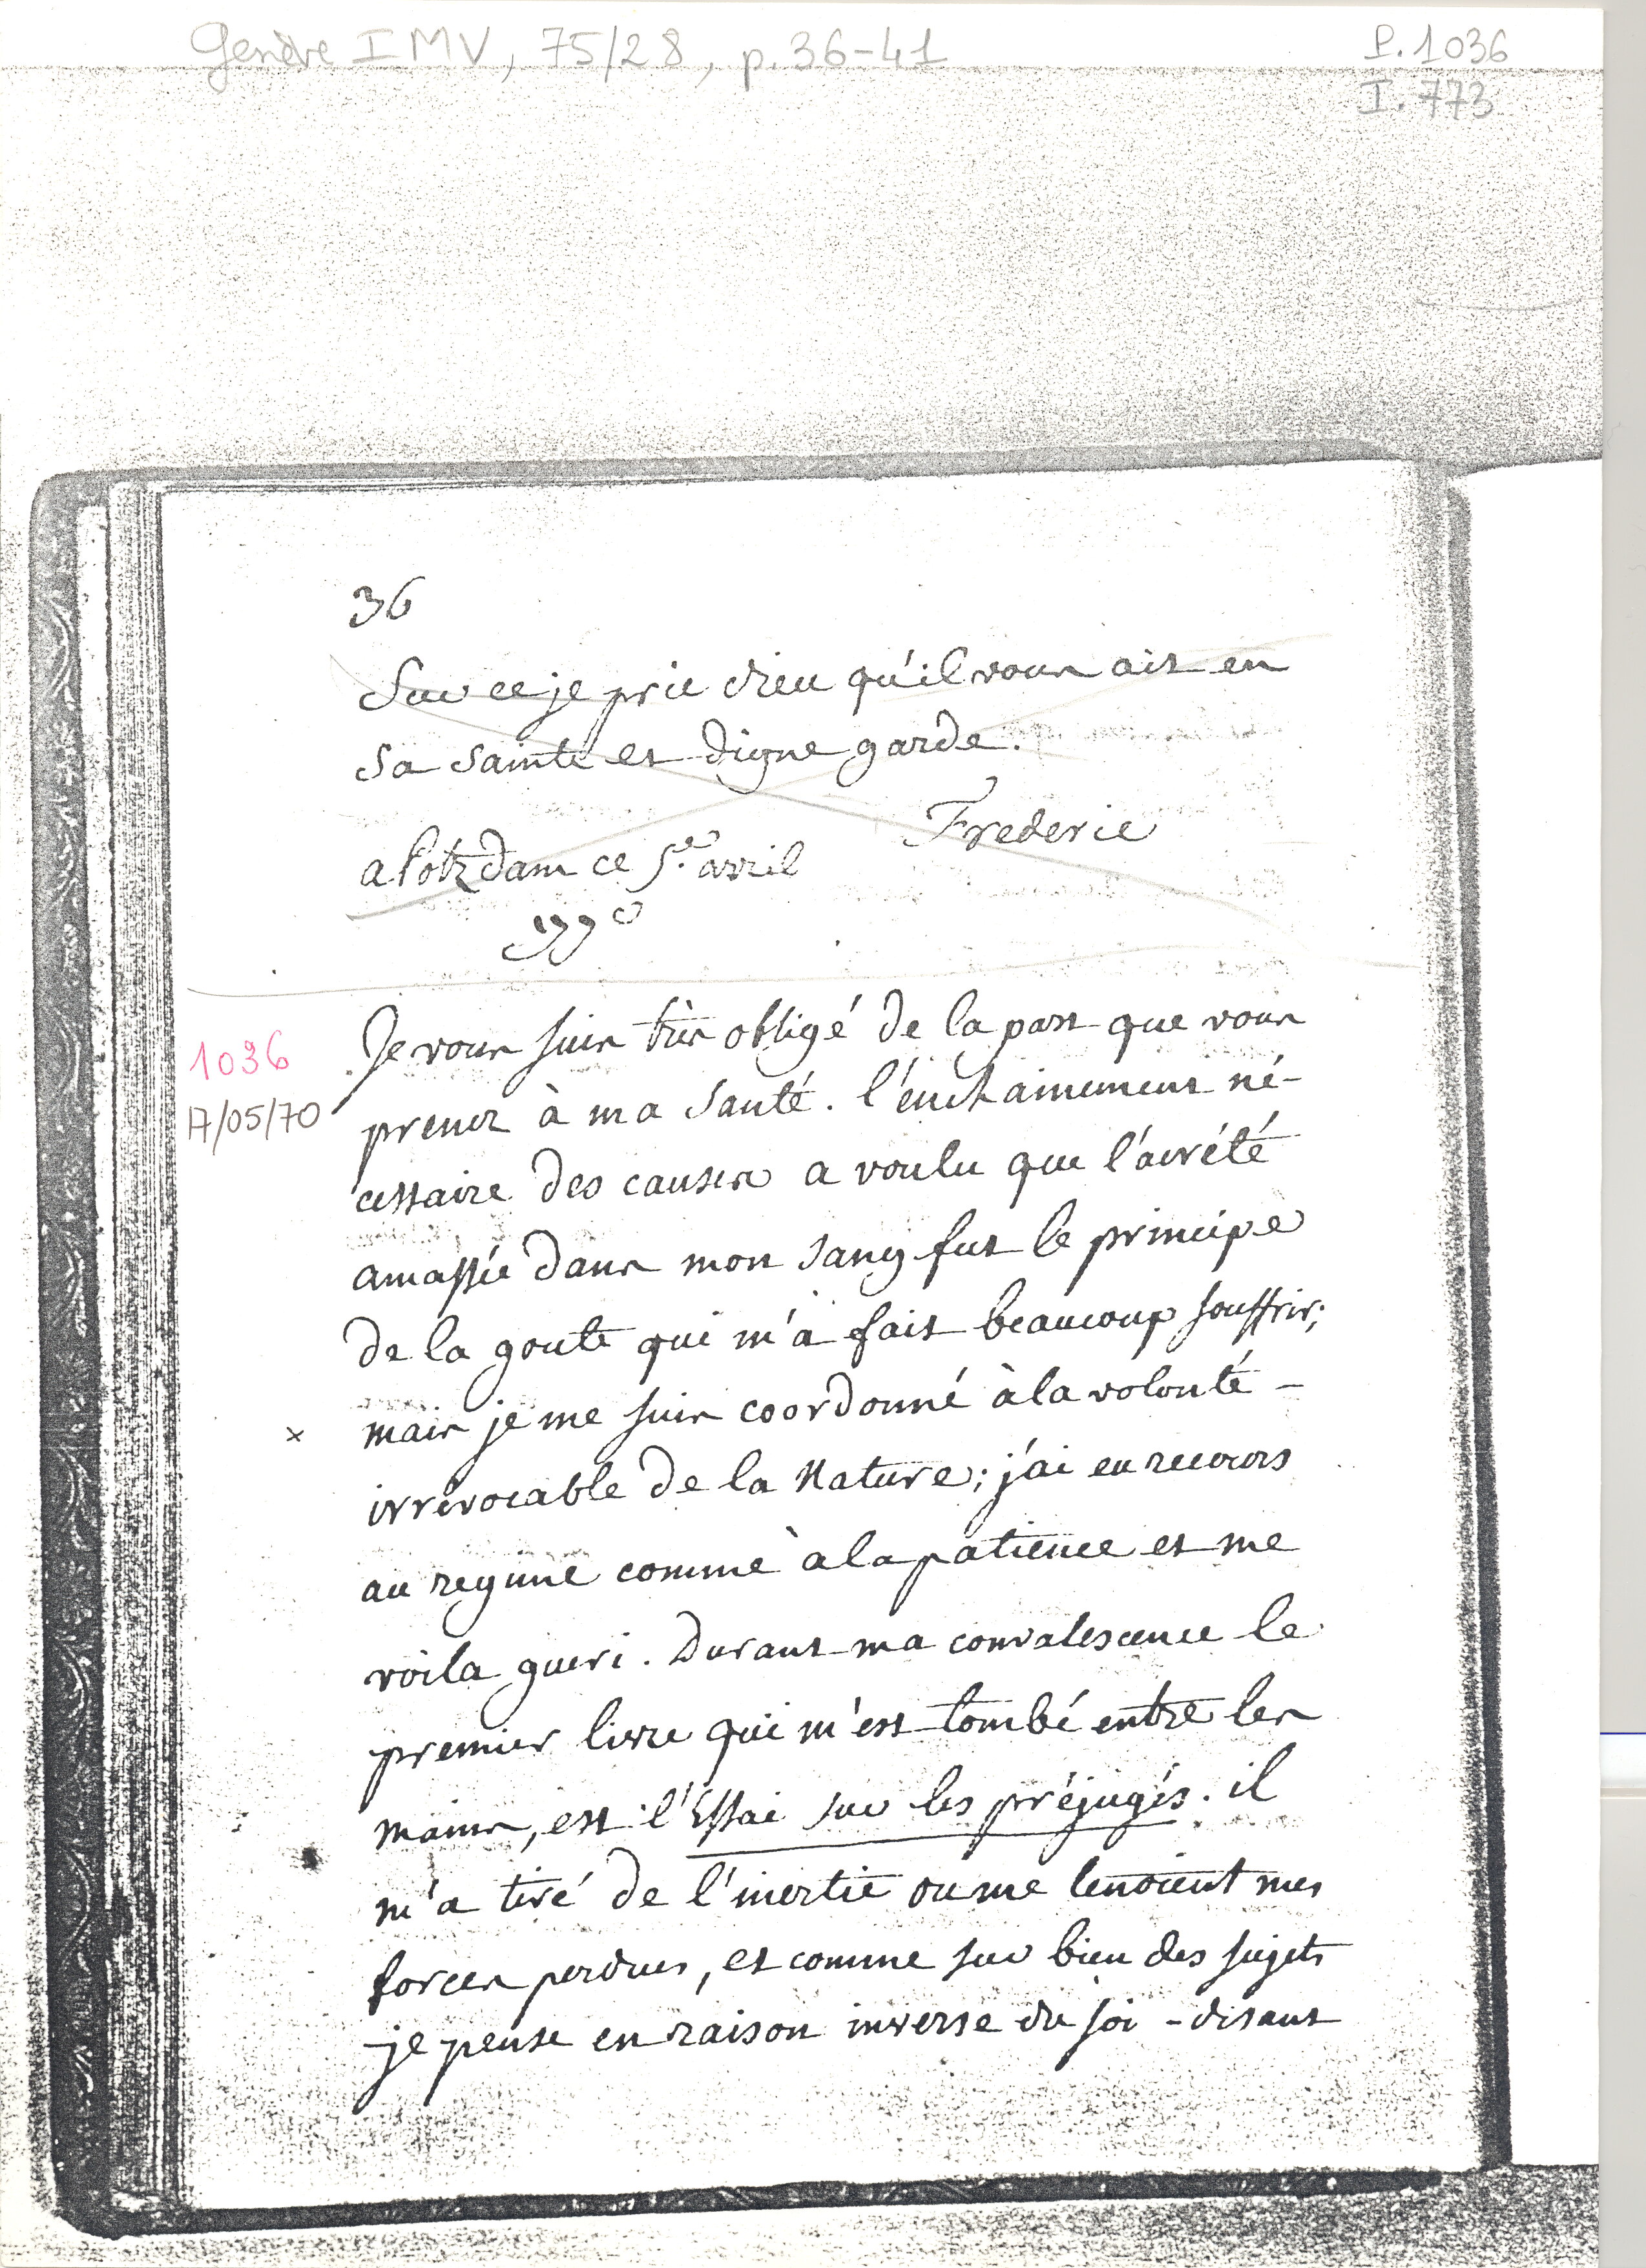 Genève IMV, 75/28, p. 36-41
P. 1036
I. 773
36
Sur ce je prie dieu qu'il vous ait en
sa sainte et digne garde.
Frederic
a Potzdam ce 5.e avril
1770
1036
17/05/70
Je vous suis très obligé de la part que vous
prenez à ma santé. l'enchainement né-
cessaire des causes a voulu que l'acrété
amassée dans mon sang fut le principe
de la goute qui m'a fait beaucoup souffrir;
x mais je me suis coordonné à la volonté -
irrévocable de la Nature; j'ai eu recours
au regime comme à la patience et me
voila gueri. Durant ma convalescence le
premier livre qui m'est tombé entre les
mains, est l'Essai sur les préjugés. il
m'a tiré de l'inertie ou me tenoient mes
forces perdues, et comme sur bien des sujets
je pense en raison inverse du soi-disant